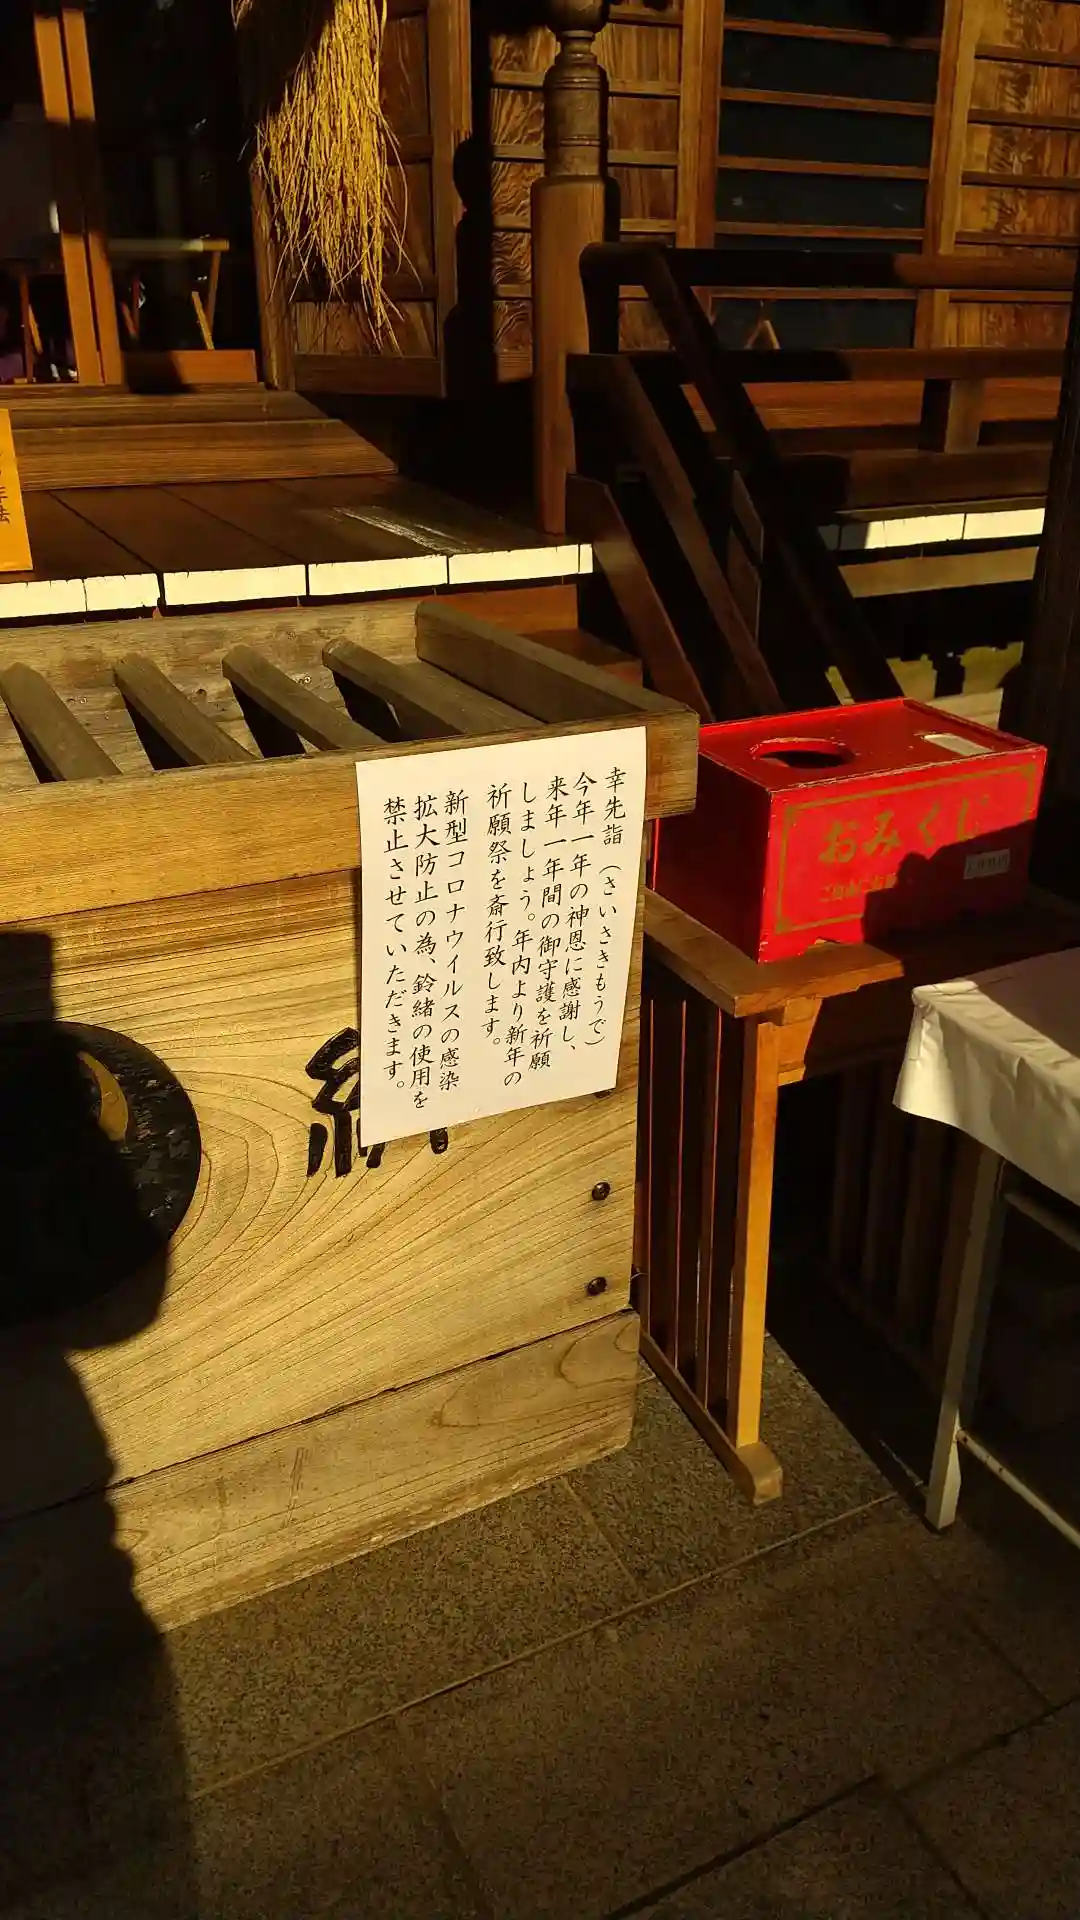 幸先詣（さいさきもうで）
今年一年の神恩に感謝し、
来年一年間の御守護を祈願
しましょう。年内より新年の
祈願祭を斎行致します。
新型コロナウイルスの感染
拡大防止の為、鈴緒の使用を
禁止させていただきます。
おみくじ